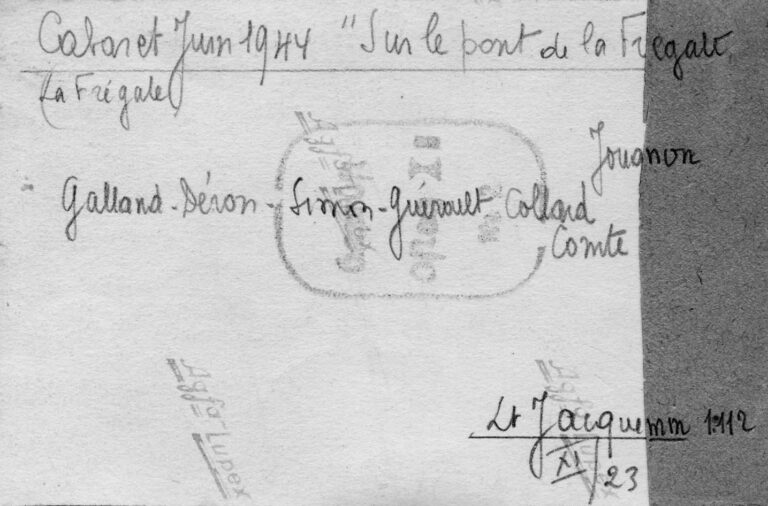 Cabaret Juin 1944 "Sur le pont de la Frégate
(La Frégate)
Jouanon
Galland - Déron - Simon - Guérault Collard
Comte
Oflag X
Agfa-Lupex
Agfa-Lupex
Lt Jacquemin 1112
XI 23